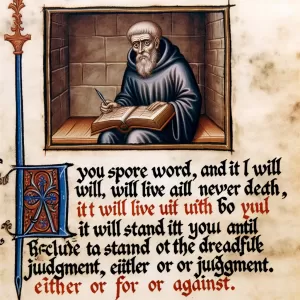 you spore word, and it l will
will, will live aill never death,
it t will live uit uith bo yuul
it will stand itt you antil
to ta stannd ot the dreadfule
judgment, or or
either or for or against.